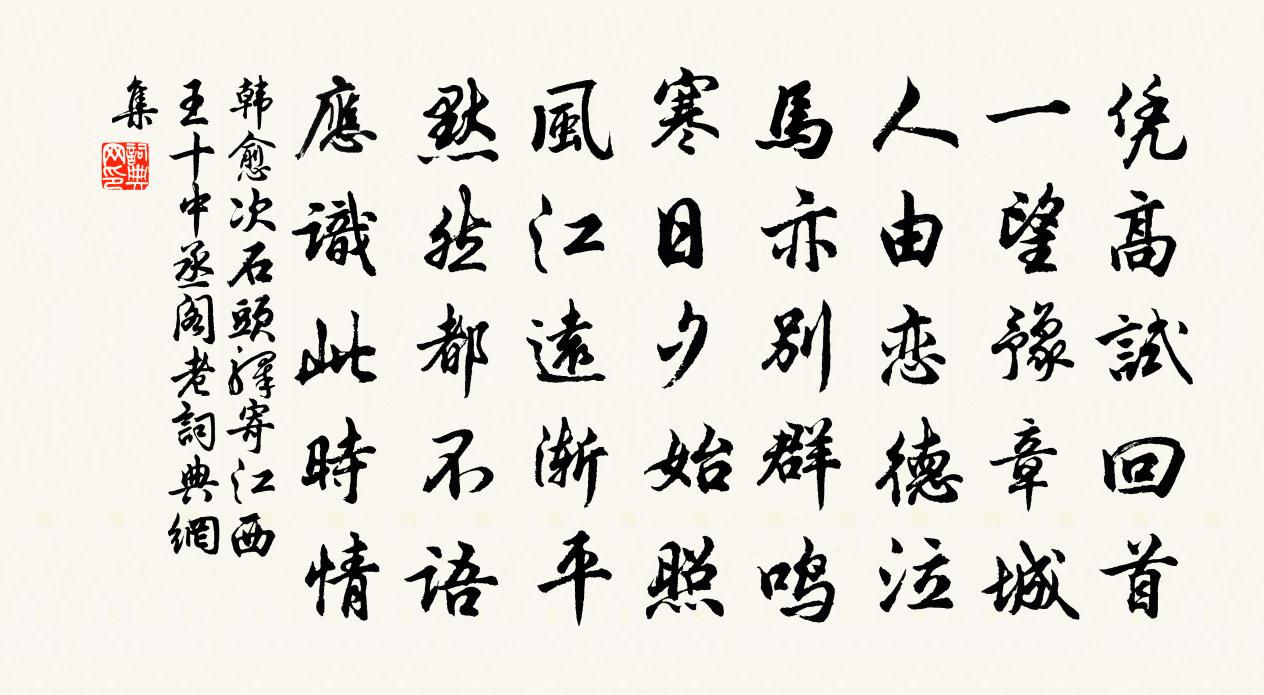 凭高試回首
一望豫章城
人由恋德泣
馬亦别群鳴
寒日夕始照
風江遠渐平
默然都不語
應識此時情
韩愈次石頭驿寄江西
王十中丞阁老詞典網
集
詞典
网印